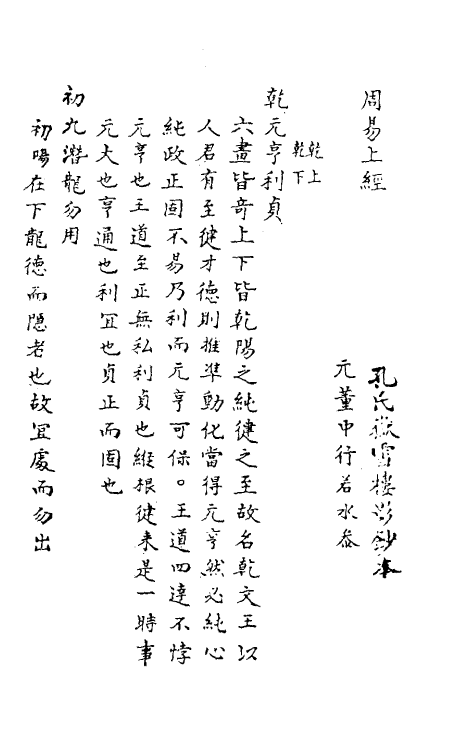 周易上經
孔氏嶽雪樓影鈔本
元董中行若水叅
乾上
乾下
乾元亨利貞
六畫皆竒上下皆乾陽之純健之至故名乾文王以
人君有至健才德則推準動化當得元亨然必純心
純政正固不易乃利而元亨可保。王道四達不悖
元亨也王道至正無私利貞也縱根健来是一時事
元大也亨通也利冝也貞正而固也
初九潛龍勿用
初陽在下龍德而隠者也故冝處而勿出